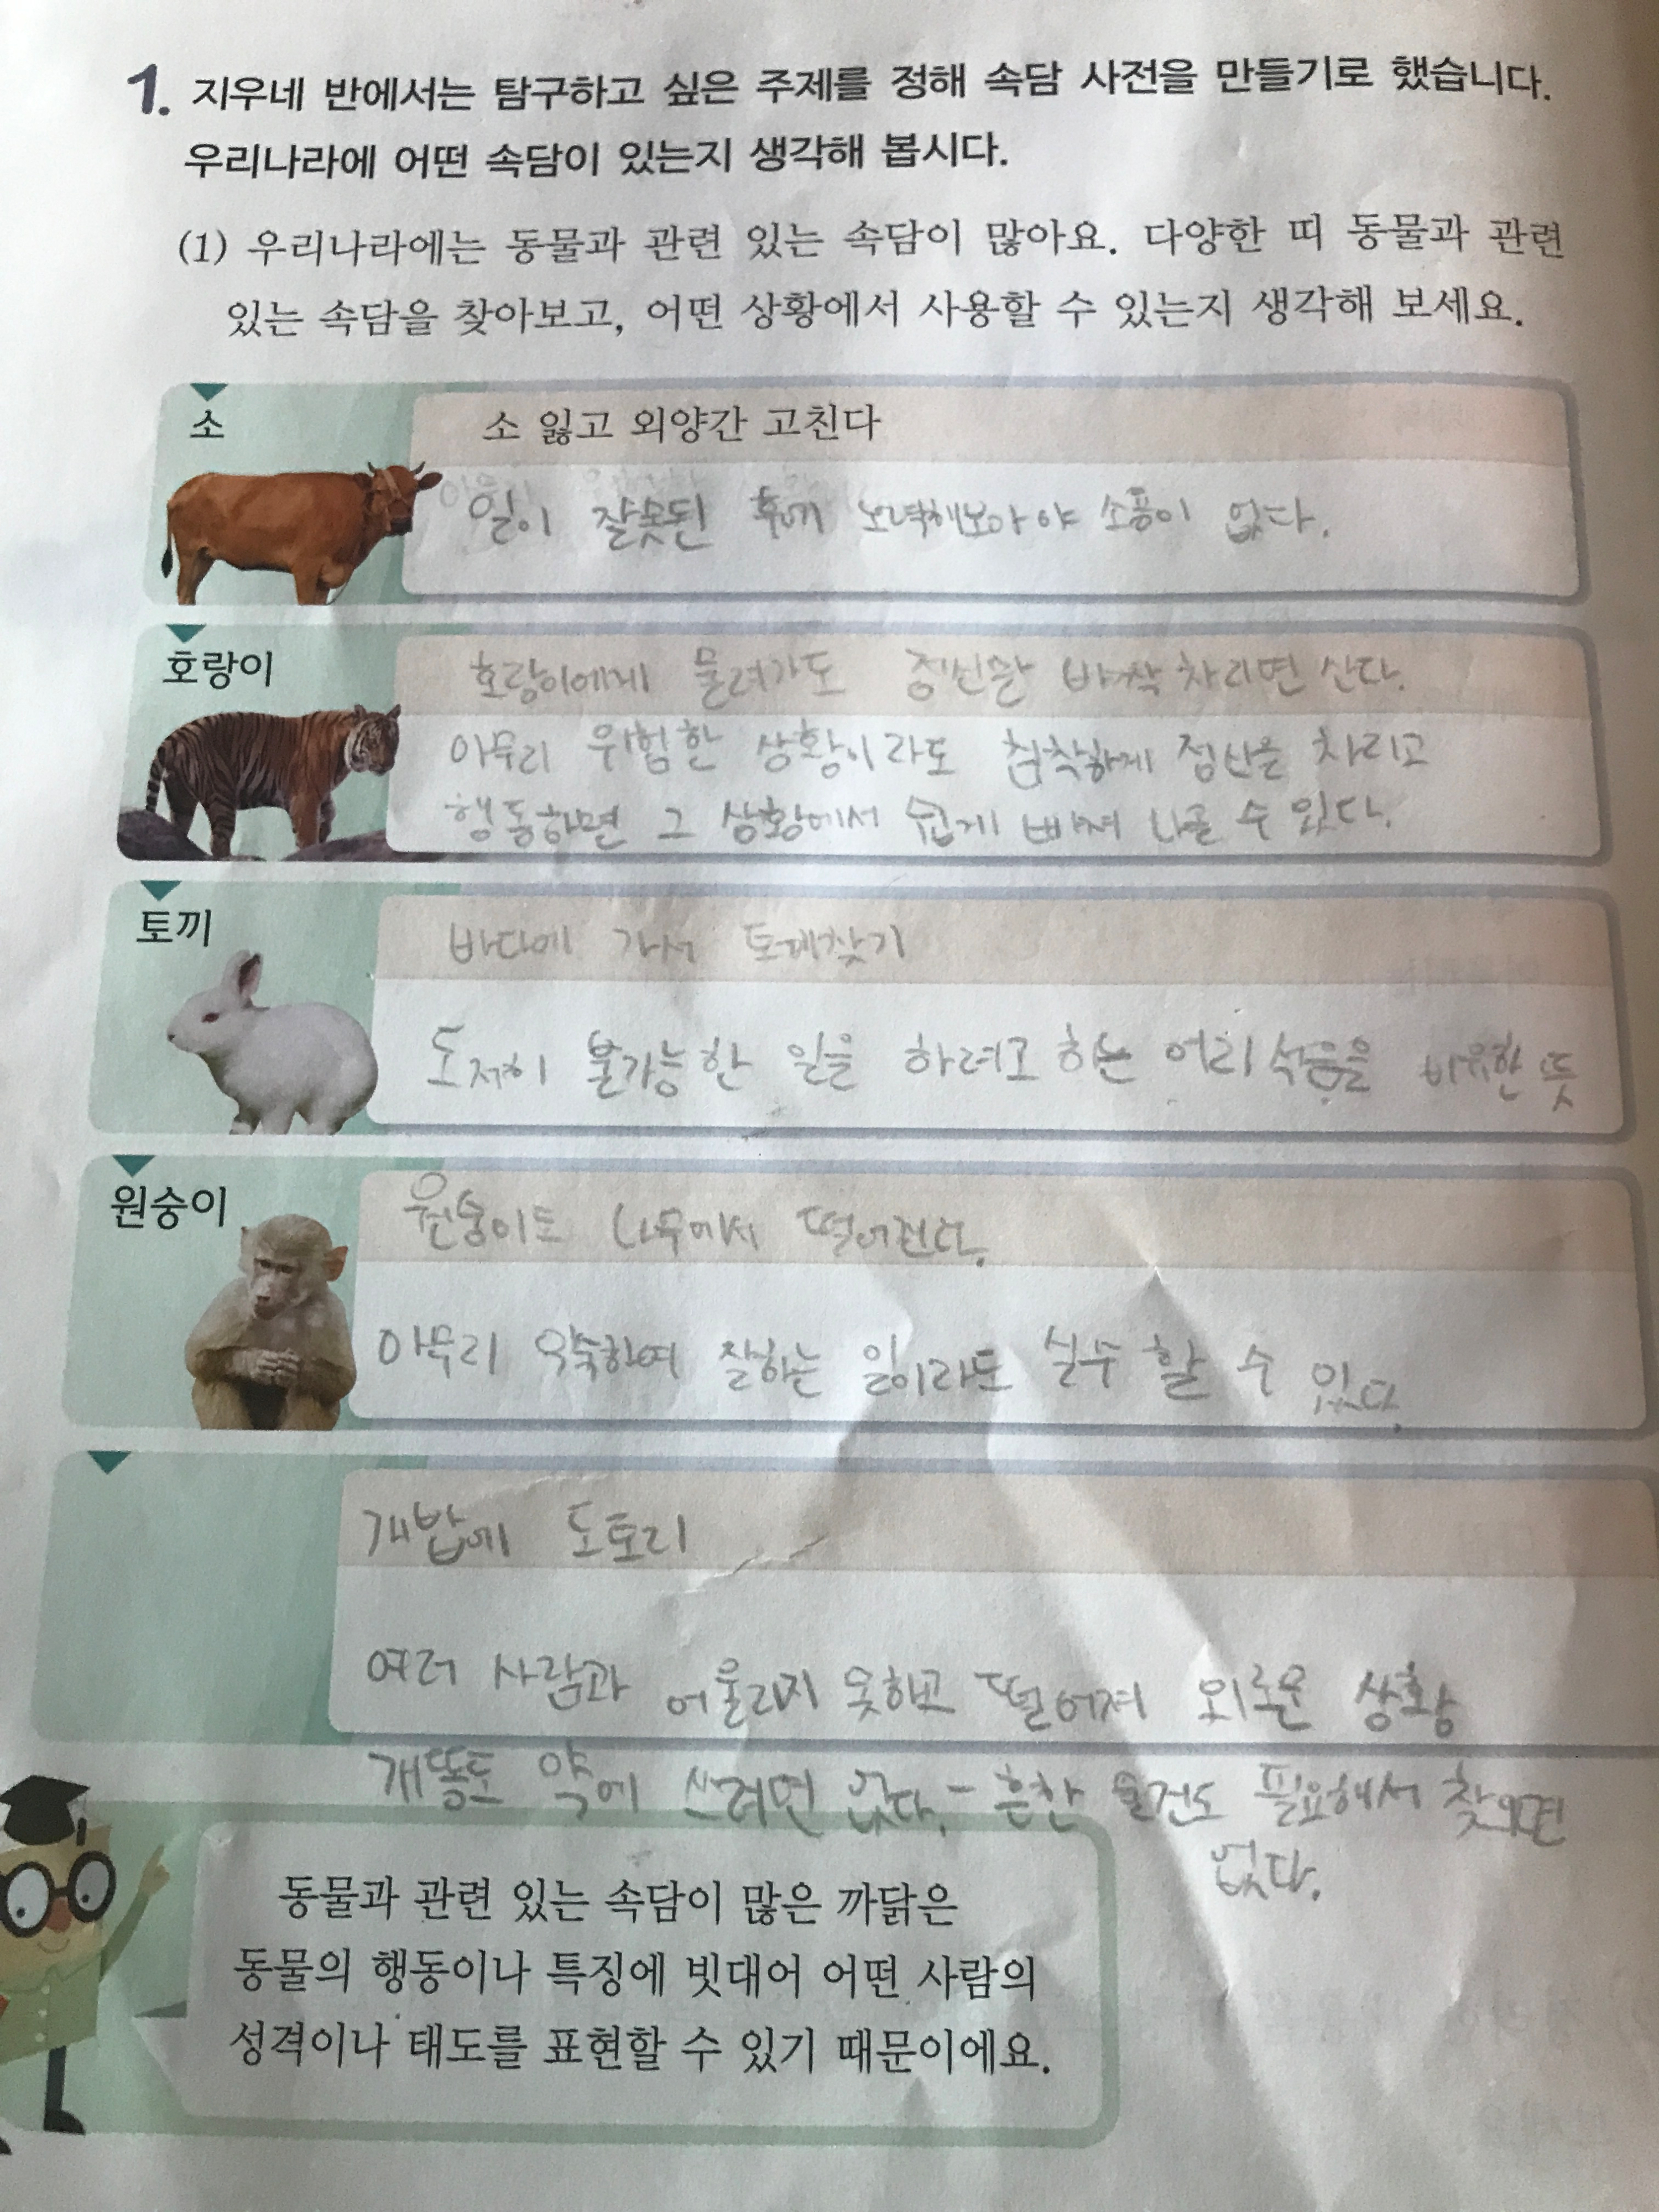 1. 지우네 반에서는 탐구하고 싶은 주제를 정해 속담 사전을 만들기로 했습니다.
우리나라에 어떤 속담이 있는지 생각해 봅시다.
(1) 우리나라에는 동물과 관련 있는 속담이 많아요. 다양한 띠 동물과 관련
있는 속담을 찾아보고, 어떤 상황에서 사용할 수 있는지 생각해 보세요.
소
소 잃고 외양간 고친다
일이 잘못된 후에 노력해보아야 소용이 없다.
호랑이
호랑이에게 물려가도 정신만 바짝 차리면 산다.
아무리 위험한 상황이라도 침착하게 정신을 차리고
행동하면 그 상황에서 쉽게 빠져 나올 수 있다.
토끼
바다에 가서 토끼찾기
도저히 불가능한 일을 하려고 하는 어리석음을 비유한 뜻
원숭이
원숭이도 나무에서 떨어진다.
아무리 익숙하여 잘하는 일이라도 실수 할 수 있다.
개밥에 도토리
여러 사람과 어울리지 못하고 떨어져 외로운 상황
개똥도 약에 쓰려면 없다. - 흔한 물건도 필요해서 찾으면
없다.
동물과 관련 있는 속담이 많은 까닭은
동물의 행동이나 특징에 빗대어 어떤 사람의
성격이나 태도를 표현할 수 있기 때문이에요.